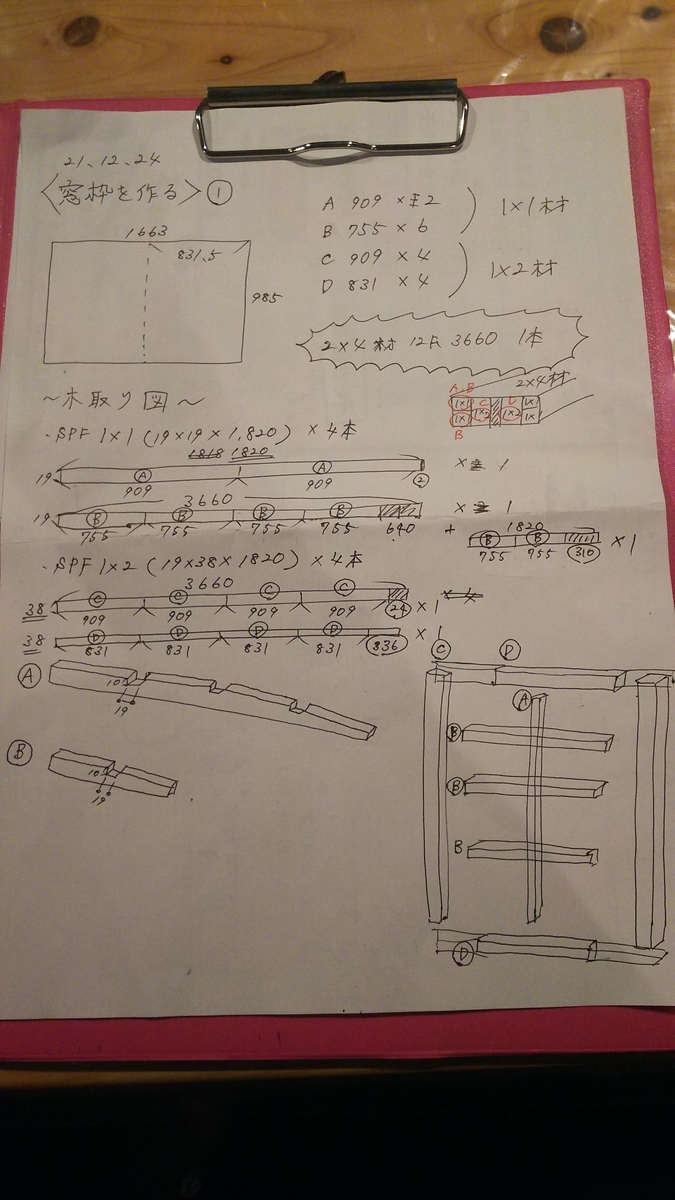 21.12.24
〈窓枠を作る〉①
1663
831.5
985
A 909 × 2
B 755 × 6
1×1材
C 909 × 4
D 831 × 4
1×2材
2×4材 12F 3660 1本
～木取り図～
2×4材
A.B
C
D
1×1
1×1
1×2
1×2
1×
1×
B
・SPF 1×1 (19×19×1,820) × 4本
1818 1820
19
A
A
909
909
2
× 1
3660
19
B
B
B
B
755
755
755
755
640
× 1
+
1820
B
B
755
755
310
×1
・SPF 1×2 (19×38×1820) × 4本
3660
38
C
C
C
C
909
909
909
909
24
×1
×4
38
D
D
D
D
831
831
831
831
336
×1
A
10
19
B
10
19
C
D
A
B
B
B
D